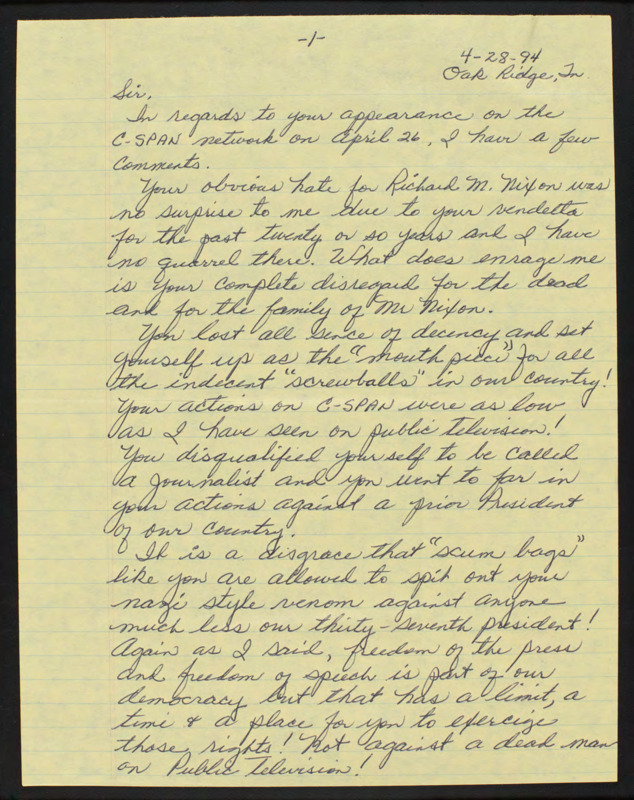 -1-
4-28-94
Oak Ridge, Tn.
Sir,
In regards to your appearance on the
C-SPAN network on April 26, I have a few
comments.
Your obvious hate for Richard M. Nixon was
no surprise to me due to your vendetta
for the past twenty or so years and I have
no quarrel there. What does enrage me
is your complete disregard for the dead
and for the family of Mr Nixon.
You lost all sence of decency and set
yourself up as the "mouth piece" for all
the indecent "screwballs" in our country!
Your actions on C-SPAN were as low
as I have seen on public television!
You disqualified yourself to be called
a journalist and you went to far in
your actions against a prior President
of our country.
It is a disgrace that "scum bags"
like you are allowed to spit out your
nazi style venom against anyone
much less our thirty-seventh president!
Again as I said, freedom of the press
and freedom of speech is part of our
democracy but that has a limit, a
time & a place for you to exercize
those rights! Not against a dead man
on Public Television!